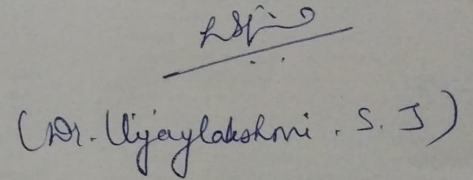 (Dr. Vijaylakshmi . S. J)